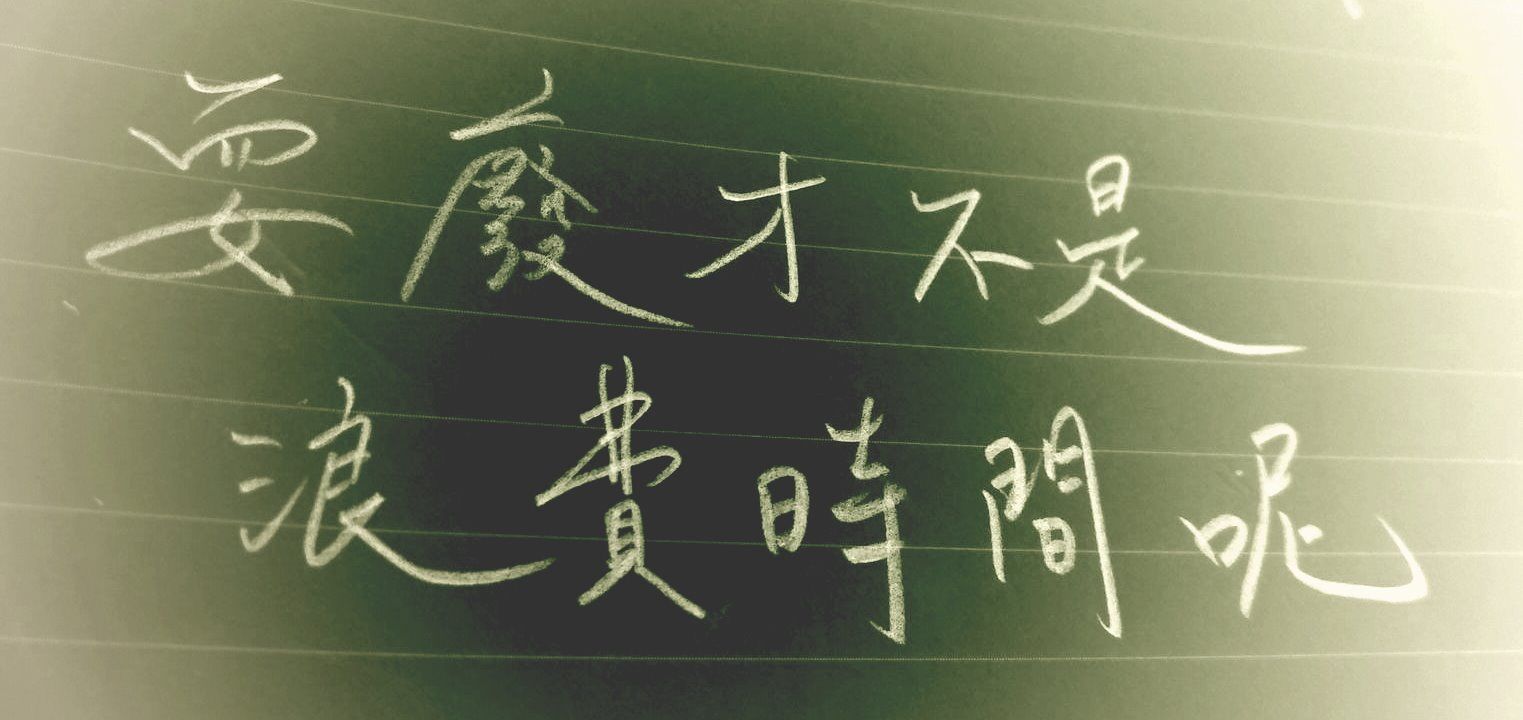 耍廢才不是
浪費時間呢